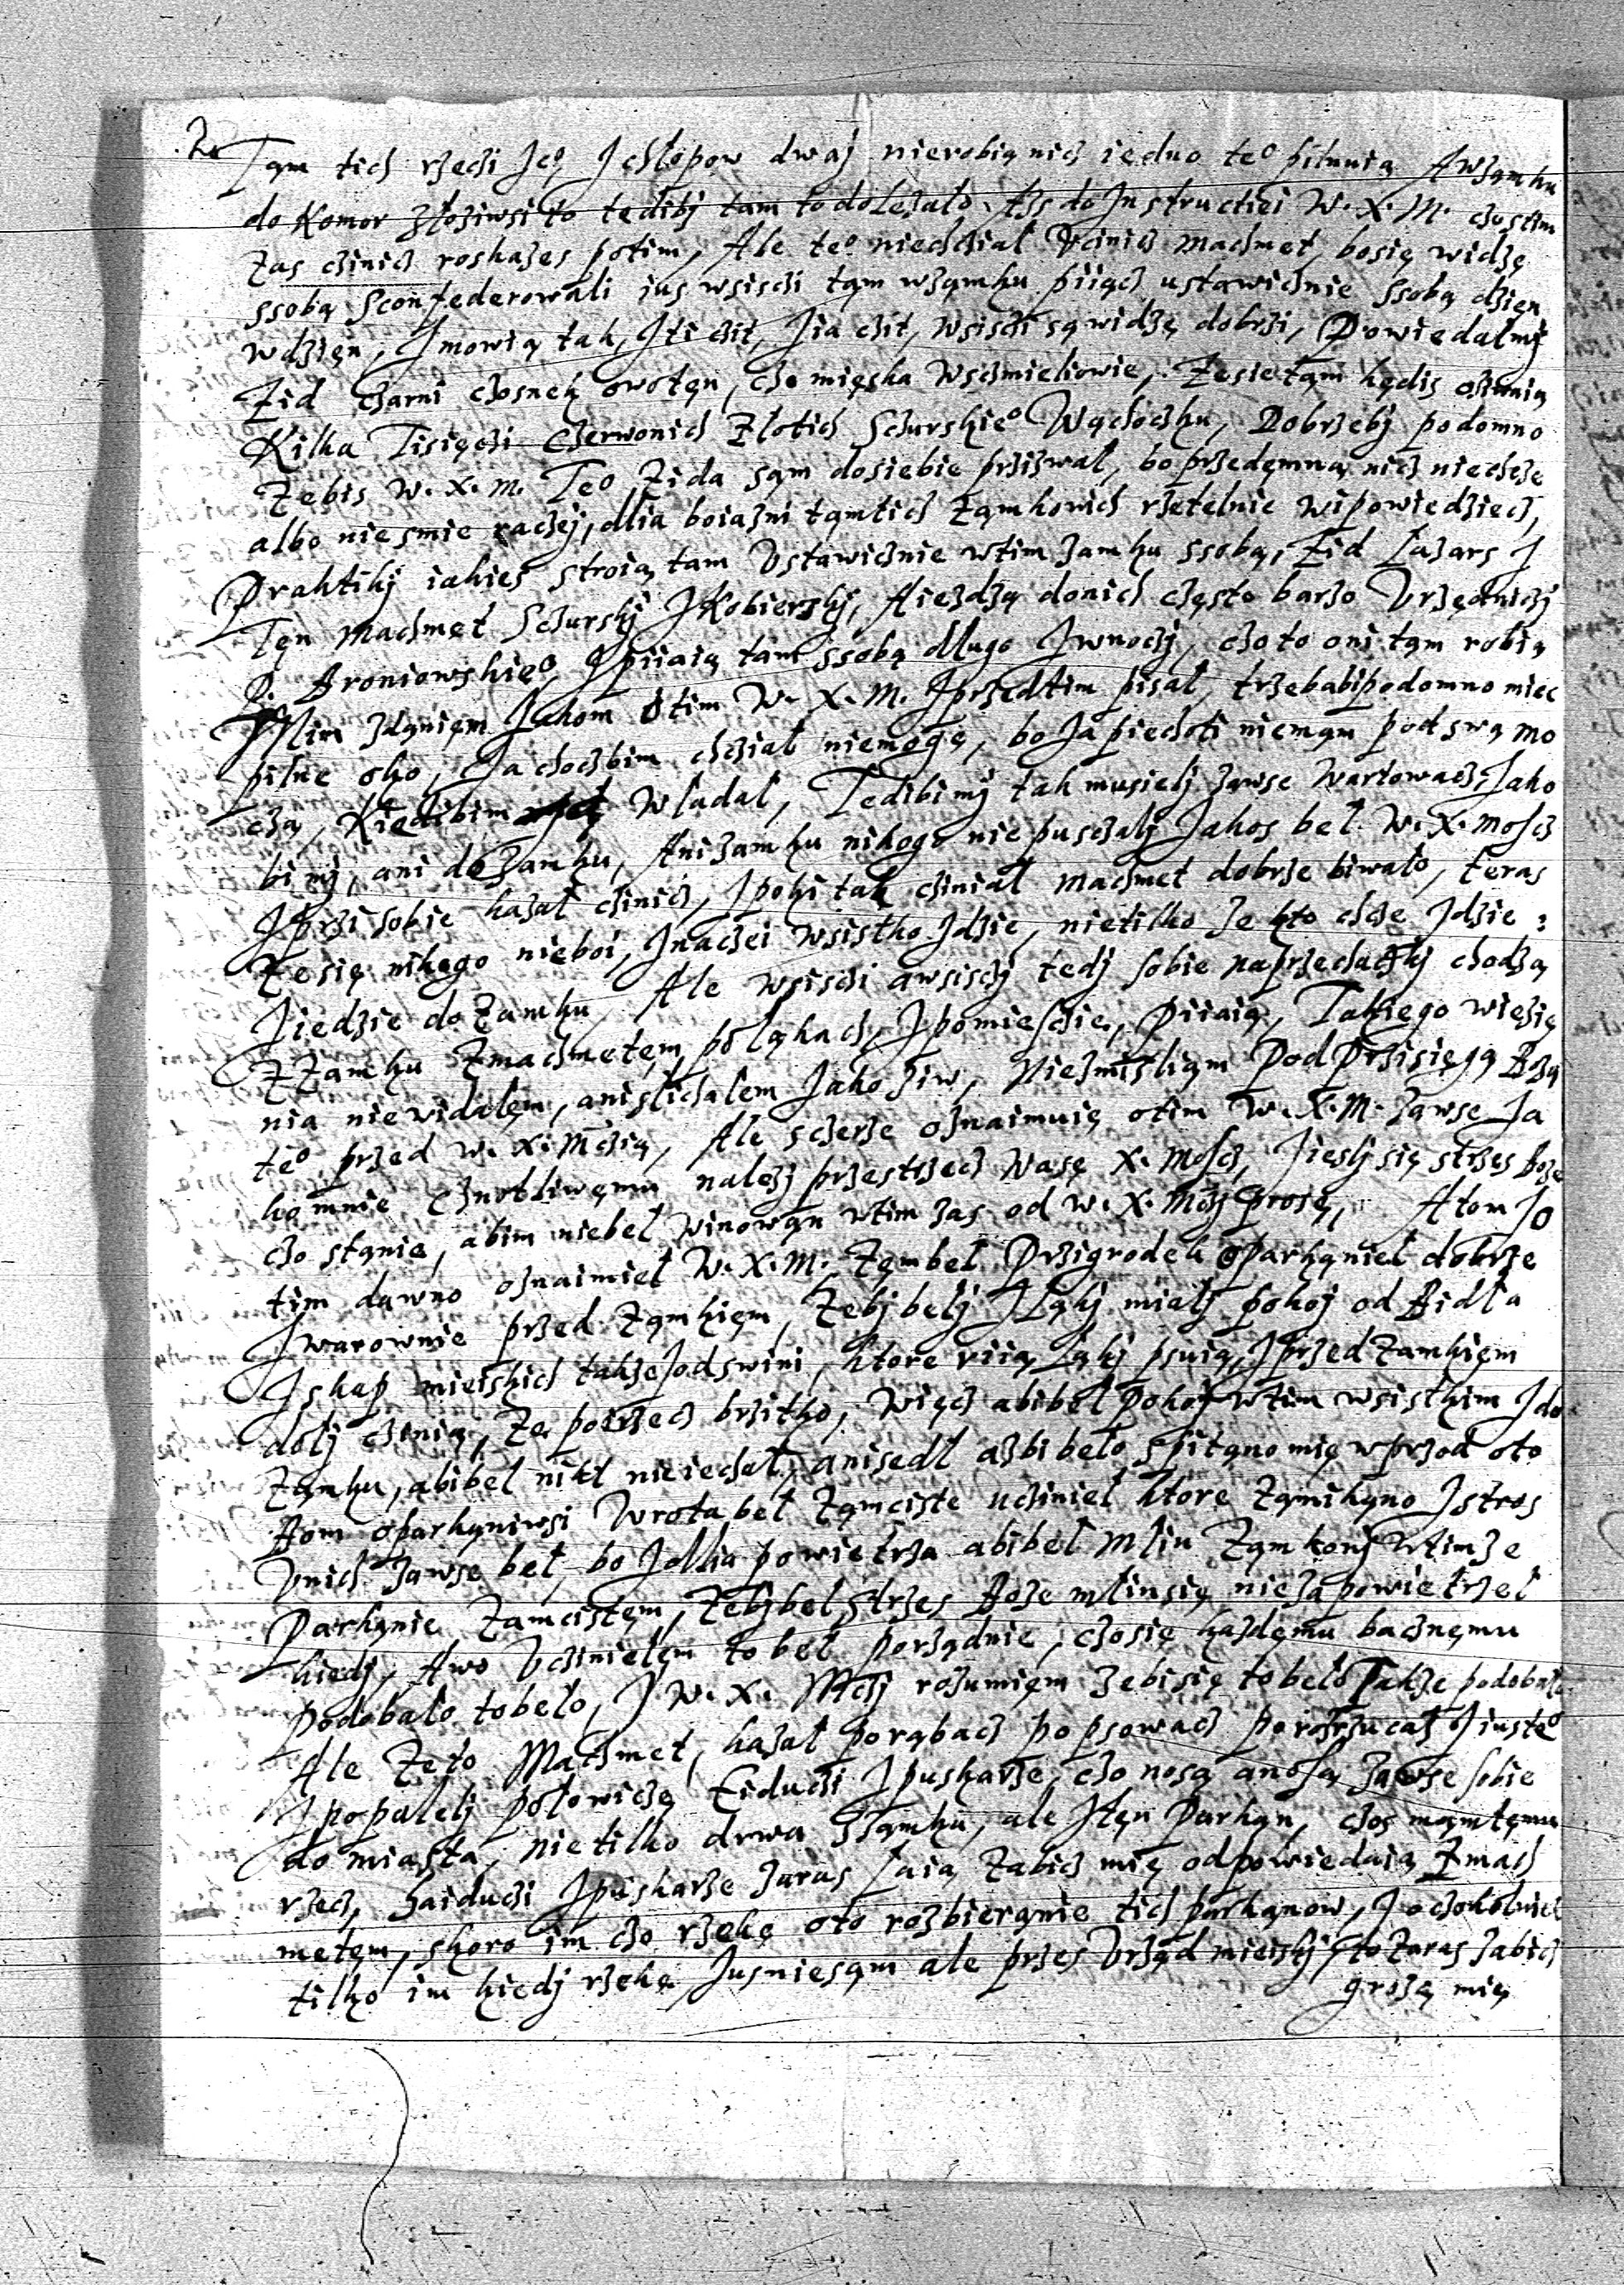 .2.
Tąm tich rzeczi Jeo, J chłopow dwaj nierobią nicz iedno teo pilnuią Awząmku
do Komor złoziwsi to tedibj tam to doLezało Azs do Jnstructiei W. X. M. czostim
zas czinicz roskazes potim, Ale teo niechcział Vcinicz Machmet, bosię widzę
ssobą Sconfederowali ius wsisczi tąm wząmku piiącz ustawicznie ssobą dzien
wdzięn, Jmowią tak, J ti czit, J ia czit, wsisczi są widzę dobrzi, Powiedalmj
Zid Czarni czosnek owotęn, czo mięska wschmieliowie, Zesie tąm kędis
Kilka Tisięczi Czerwonich Złotich Sczurskieo Wąchoczku, Dobrzebj podomno
Zebis W. X. M. Teo Zida sąm dosiebie przizwał, bo przedęmną nicz niechcze
albo niesmie raczej, dlia boiazni tąmtich Ząmkowich rzetelnie wipowiedziecz,
Praktikj iakies stroią tam Vstawicznie wtim zamku ssobą, Zid Lazars J
Tęn Machmet Sczurskj J Kobierskj, Aiezdzą donich często barzo Vrzędniczj
P. Broniowskieo, J piiaią tam ssobą dlugo J wnoczj, czo to oni tąm robią
Mim zdąniem Jakom o tim W. X. M. J przedtim pisał, trzebabi podomno miec
pilne oko, Ja choczbim chcział niemogę, bo Ja piechoti niemąm pod swą mo
czą, Kiedibim władał, Tedibi mj tak musielj zawse wartowacz, Jako
bi mj, ani do Zamku, Ani zamku nikogo nie pusczalj Jakos beł W. X. Moscz
J przi sobie kazał czinicz, J poki tak czinial Machmet dobrze biwało, teras
Ze się nikogo nieboi, Jnaczei wsistko Jdzie, nietilko Ze kto chcze Jdzie :
J iedzie do Zamku, Ale wsisczi awsisczj tedj sobie na przechadzkj chodzą
Z Zamku Zmachmetęm, po Ląkach, J pomiescie, piiaią, Takiego wiezię
nia niewidałęm, anislichałem Jako ziw, Niezmisliąm Pod Przisięgą Bozą
teo przed W. X. Mczią, Ale sczerze oznaimuię otim W. X. M. zawse Ja
ko mnie Cznotliwęmu nalezj przestrzecz Wasę X. Moscz, Jieslj się strzes Boze
czo stąnie, abim niebeł winowąn wtim zas od W. X. Mczj prosę, Atom Jo
tim dawno oznaimieł W. X. M. Zęmbeł Przigrodek oparkąnieł dobrze
J warownie przed Ząmkięm, Zebj belj J Ląkj mialj pokoj od Bidła
J skap mieiskich takze J od swini, ktore riią Ląkj psuią, J przed Zamkięm
dolj czinią, Ze poirzecz brzitko, Więcz abibeł Pokoj wtim wsistkim J do
Ząmku, abibeł nikt nieiechał, anisedł azbi beło spitąno mię wprzod oto
Bom oparkąniwsi Wrota beł Ząmciste uczinieł ktore Ząmikąno J stros
Vnich zawse beł, bo J dlia powietrza abibeł Mlin Ząmkowj wtimze
Parkąnie Zamcistęm, Zebjbeł strzes Boze mlinsię niezapowietrzeł
kiedj, Awo Vczinielęm to beł porządnie, czosię kazdęmu bacznęmu
podobało tobeło, J W. X. Mczj rozumięm zebisię to beło Takze podobało
Ale Zeto Machmet, kazał porąbacz popsowacz porozrzucacz J iusteo
J popalelj połowiczę Eiduczi J puskarze, czo nosą anosą zawse sobie
do miasta, nietilko drwa zząmku, ale J tęn Parkąn, czos mąmtęmu
rzecz, Haiduczi J puskarze zaras Laią Zabicz mię odpowiedaią Zmach
metęm, skoro im czo rzekę oto rozbieranie tich parkąnow, J oczokolwiek
tilko im kiedj rzekę Jusniesąm ale przes Vrząd mieiskj, to zaras zabicz
grozą mię